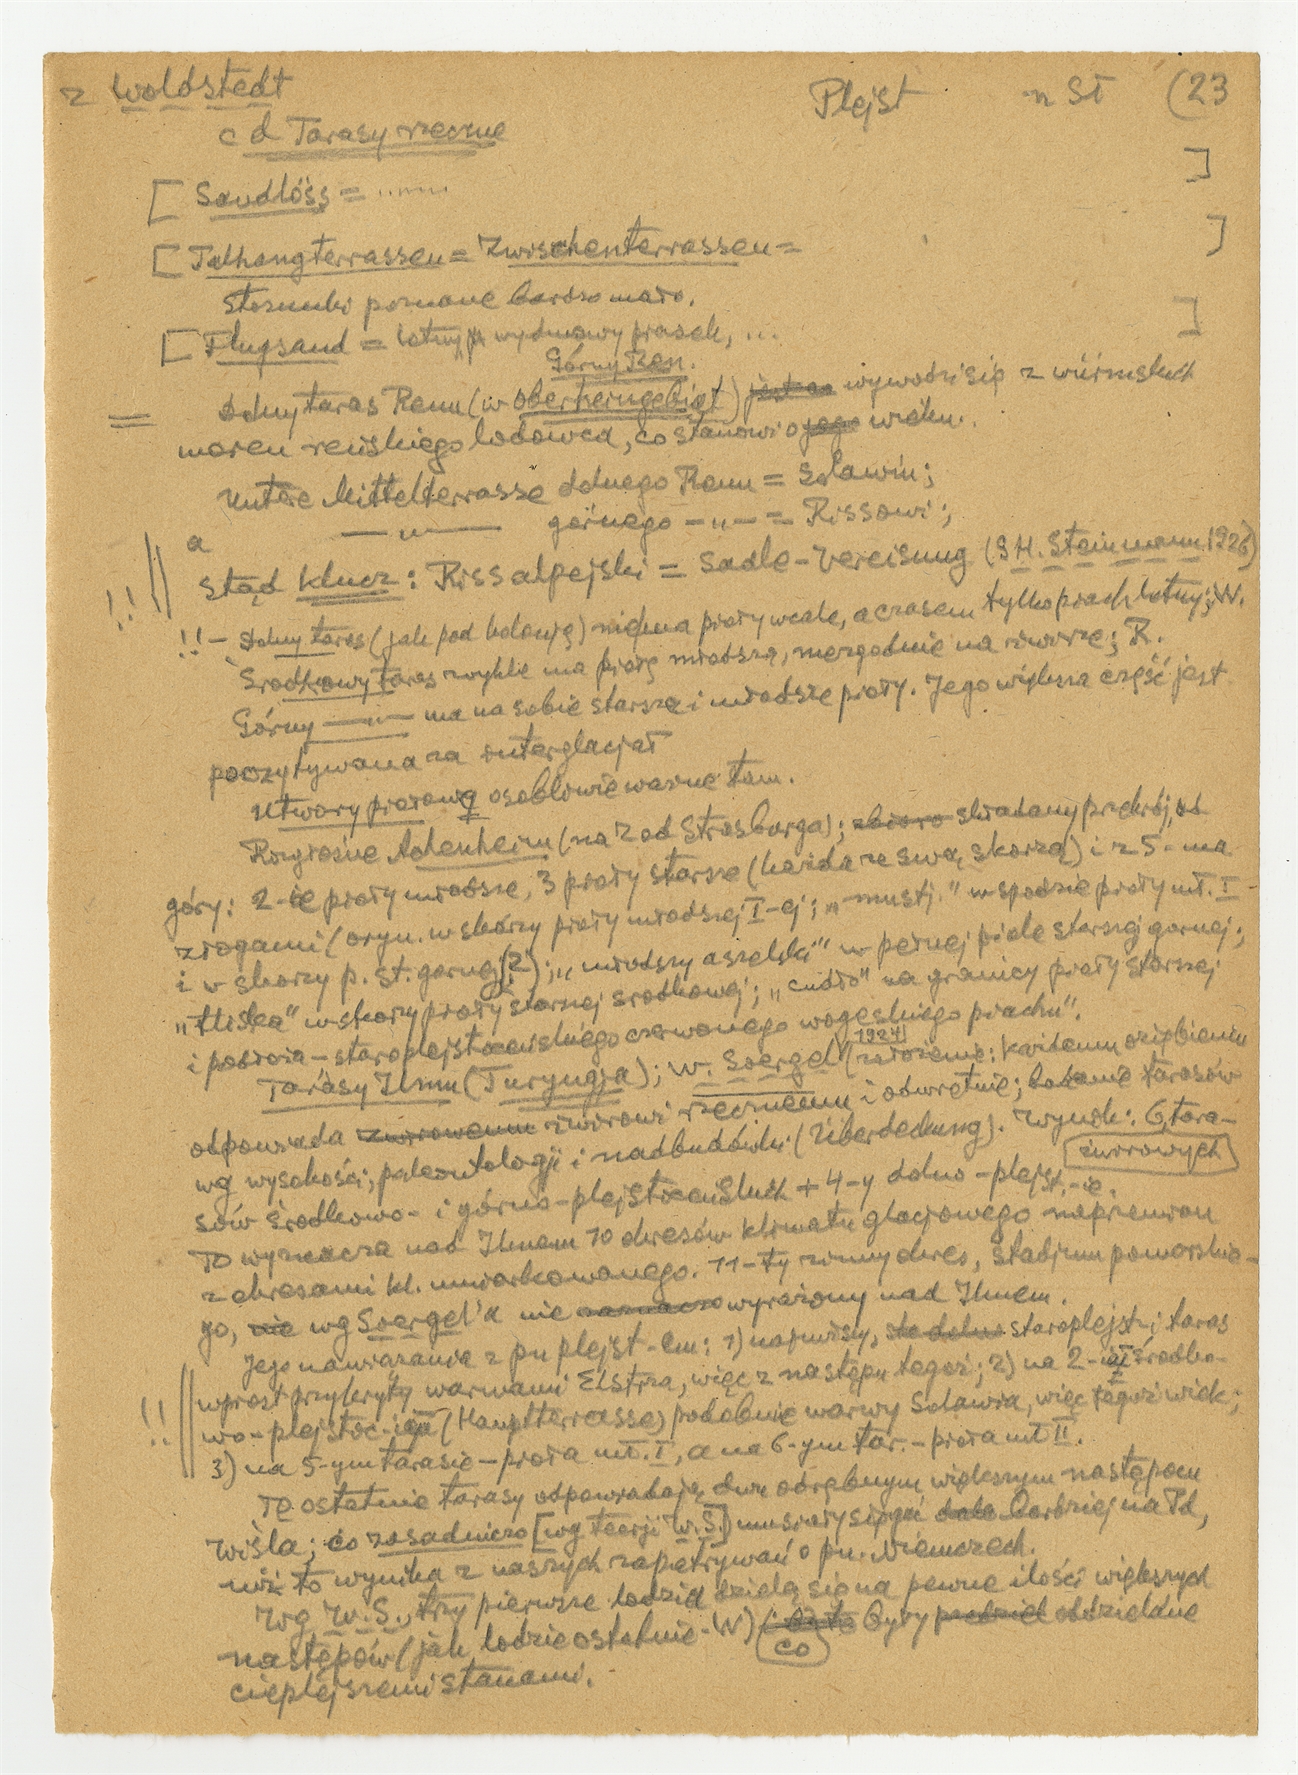 z Woldstedt Plejst n St (23
c d Tarasy rzeczne
[Sandlöss = ....... ]
[Talhangterrassen = Zwischenterrassen = ]
stosunki poznane bardzo mało.
[Flugsand = lotny wydmowy piasek, ... ]
Górny Ren.
Dolny taras Renu (w Oberrheingebiet) wywodzi się z würmskich
moren reńskiego lodowca, co stanowi o jego wieku.
Untere Mittelterrasse dolnego Renu = Solawin;
a —„— górnego —„— = Rissowi;
!! stąd klucz: Riss alpejski = Saale-Vereisung (G H. Steinmann 1926)
!! - Dolny taras (jak pod kolonją) niema piroły wcale, a czasem tylko piach lotny; W.
Środkowy taras zwykle ma młodszą, niezgodnie na żwirze; R.
Górny —„— ma na sobie starsze i młodsze. Jego większa część jest
poczytywana za interglacjał
Utwory osobliwie ważne tam.
Rozgłośne Achenheim (na Z od Strasburga); składany przekrój, od
góry: 2-ie młodsze, 3 starsze (każda ze swą skorzą) i z 5-ma
złogami (oryn. w skórzy młodszej I-ej; „mustj." w spodzie mł. I
i w skorzy p. st. górnej (2); „młodszy aszelski" w pełnej starszej górnej;
w skorzy starszej środkowej; „cudło" na granicy starszej
i podłoża - staroplejstoceńskiego czerwonego wogeskiego piachu".
Tarasy Ilmu (Turyngja); W. Soergel (1924 założenie: każdemu oziębieniu
odpowiada żwirowi rzecznemu i odwrotnie; badanie tarasów
wg wysokości; paleontologji i nadbudówki (Überdeckung). Wynik: 6 tara-
żwirowych
sów środkowo- i górno-plejstoceńskich + 4-y dolno-plejst.-ie.
To wyznacza nad Ilmem 10 okresów klimatu glacjowego naprzemian
z okresami kl. umiarkowanego. 11-ty zimny okres, stadjum pomorskie-
go, nie wg Soergel'a nie wyrażony nad Ilmem.
Jego nawiązania z pn plejst-em: 1) najwyższy, staroplejst-i taras
!! wprost przykryty warwami Elstrza, więc z następu tegoż; 2) na 2-im środko-
wo-plejstoc-im (Hauptterrasse) podobnie warwy Solawia, więc tegoż wiek;
3) na 5-ym tarasie - mł. I, a na 6-ym tar. - mł II.
Te ostatnie tarasy odpowiadają dwu odrębnym większym następom
Wiśla; co zasadniczo [wg teorji W.S.] musiały sięgać bardziej na Pd,
niż to wynika z naszych zapatrywań o pn. Niemczech.
Wg W.S., trzy pierwsze lodzie dzielą się na pewne ilości większych
następów (jak lodzie ostatnie - W) co były oddzielone
cieplejszemi stanami.